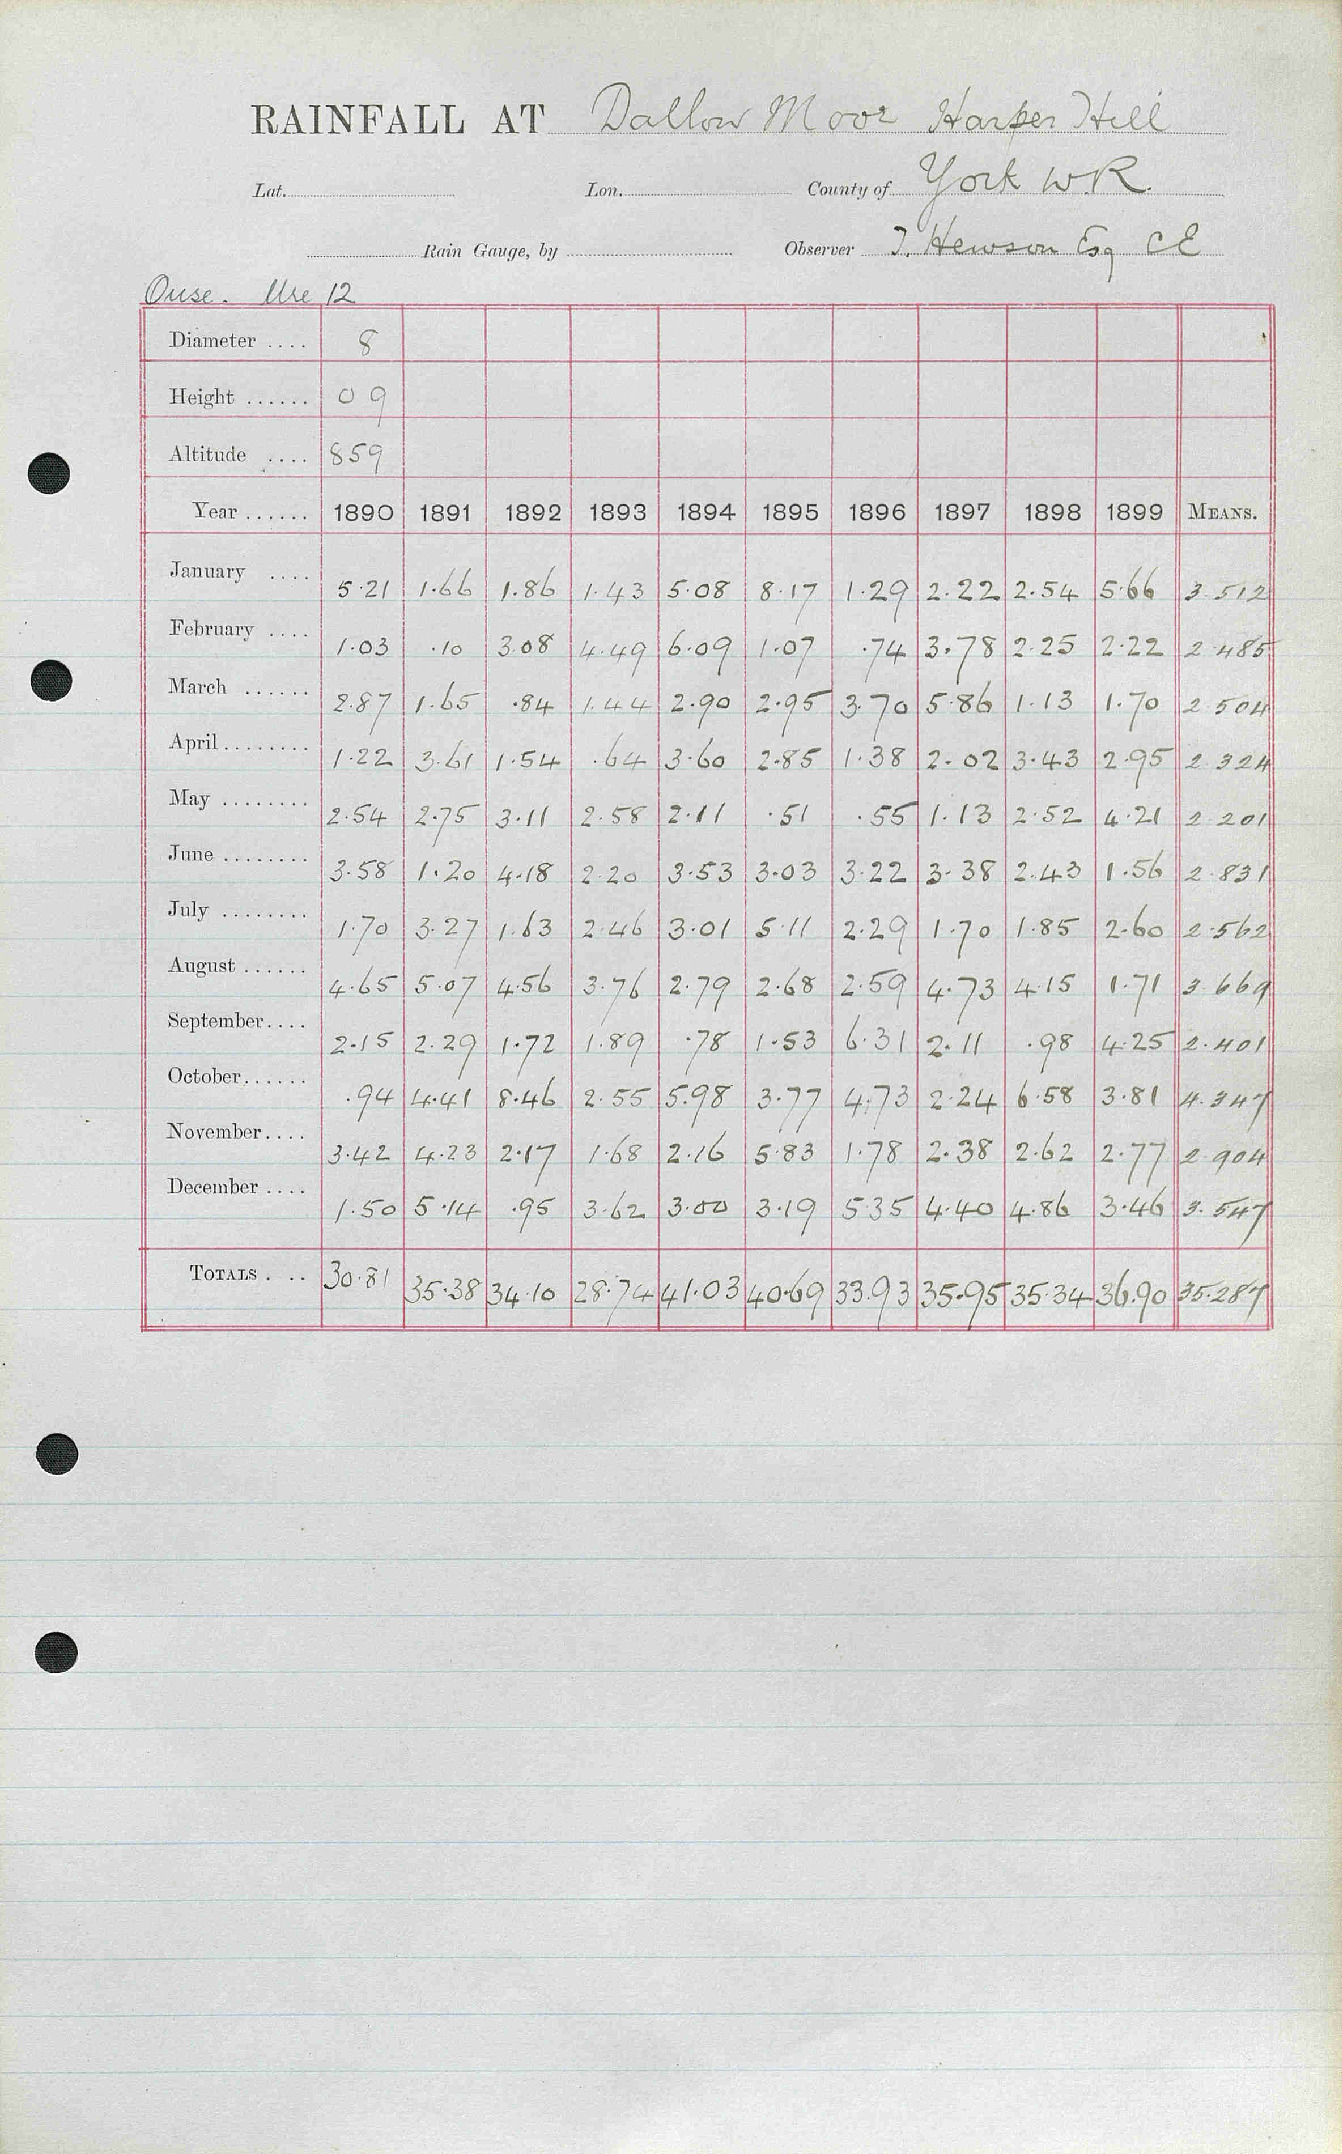 RAINFALL AT Dallow Moor Harper Hill
Lat. Lon. County of York W.R.
Rain Gauge, by Observer T. Hewson Esq CE
Ouse. Ure 12
Diameter .... 8
Height ...... 0 9
Altitude .... 859
Year ...... 1890 1891 1892 1893 1894 1895 1896 1897 1898 1899 MEANS.
January .... 5.21 1.66 1.86 1.43 5.08 8.17 1.29 2.22 2.54 5.66 3.512
February .... 1.03 .10 3.08 4.49 6.09 1.07 .74 3.78 2.25 2.22 2.485
March ...... 2.87 1.65 .84 1.44 2.90 2.95 3.70 5.86 1.13 1.70 2.504
April ........ 1.22 3.61 1.54 .64 3.60 2.85 1.38 2.02 3.43 2.95 2.324
May ........ 2.54 2.75 3.11 2.58 2.11 .51 .55 1.13 2.52 4.21 2.201
June ........ 3.58 1.20 4.18 2.20 3.53 3.03 3.22 3.38 2.43 1.56 2.831
July ........ 1.70 3.27 1.63 2.46 3.01 5.11 2.29 1.70 1.85 2.60 2.562
August ...... 4.65 5.07 4.56 3.76 2.79 2.68 2.59 4.73 4.15 1.71 3.669
September .... 2.15 2.29 1.72 1.89 .78 1.53 6.31 2.11 .98 4.25 2.401
October ...... .94 4.41 8.46 2.55 5.98 3.77 4.73 2.24 6.58 3.81 4.347
November .... 3.42 4.23 2.17 1.68 2.16 5.83 1.78 2.38 2.62 2.77 2.904
December .... 1.50 5.14 .95 3.62 3.00 3.19 5.35 4.40 4.86 3.46 3.547
TOTALS . .. 30.81 35.38 34.10 28.74 41.03 40.69 33.93 35.95 35.34 36.90 35.287